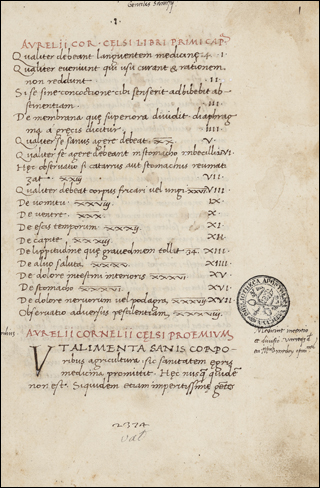 AVRELII COR· CELSI LIBRI PRIMI CAP
Qualiter debeant languentem medicine I
Qualiter eveniunt qui usu curant & rationem
non reddunt II
Si sese sine concoctione cibi senserit adbibebit ab
stinentiam III
De membrana que superiora dividit diaphrag
ma a grecis dicitur IIII
Qualiter se sanus agere debeat xx V
Qualiter se agere debeant in stomacho imbecilli VI
Hec observatio si catarus aut stomacus reumati
zat VII
Qualiter debeat corpus fricari vel ungi VIII
De vomitu IX
De ventre xxx X
De escis temporum XI
De capite XII
De lippitudine que gravedinem tollit 34 XIII
De alvo saluta XIIII
De dolore intestini interioris XV
De stomacho XVI
De dolore nervorum vel podagra XVII
Observatio adversus pestilentiam
AVRELII CORNELII CELSI PROEMIVM
VT ALIMENTA SANIS CORPO
ribus agricultura sic sanitatem egris
medicina promittit· Hec nusquam quidem
non est· Siquidem etiam imperitissime gentes
2374
vat